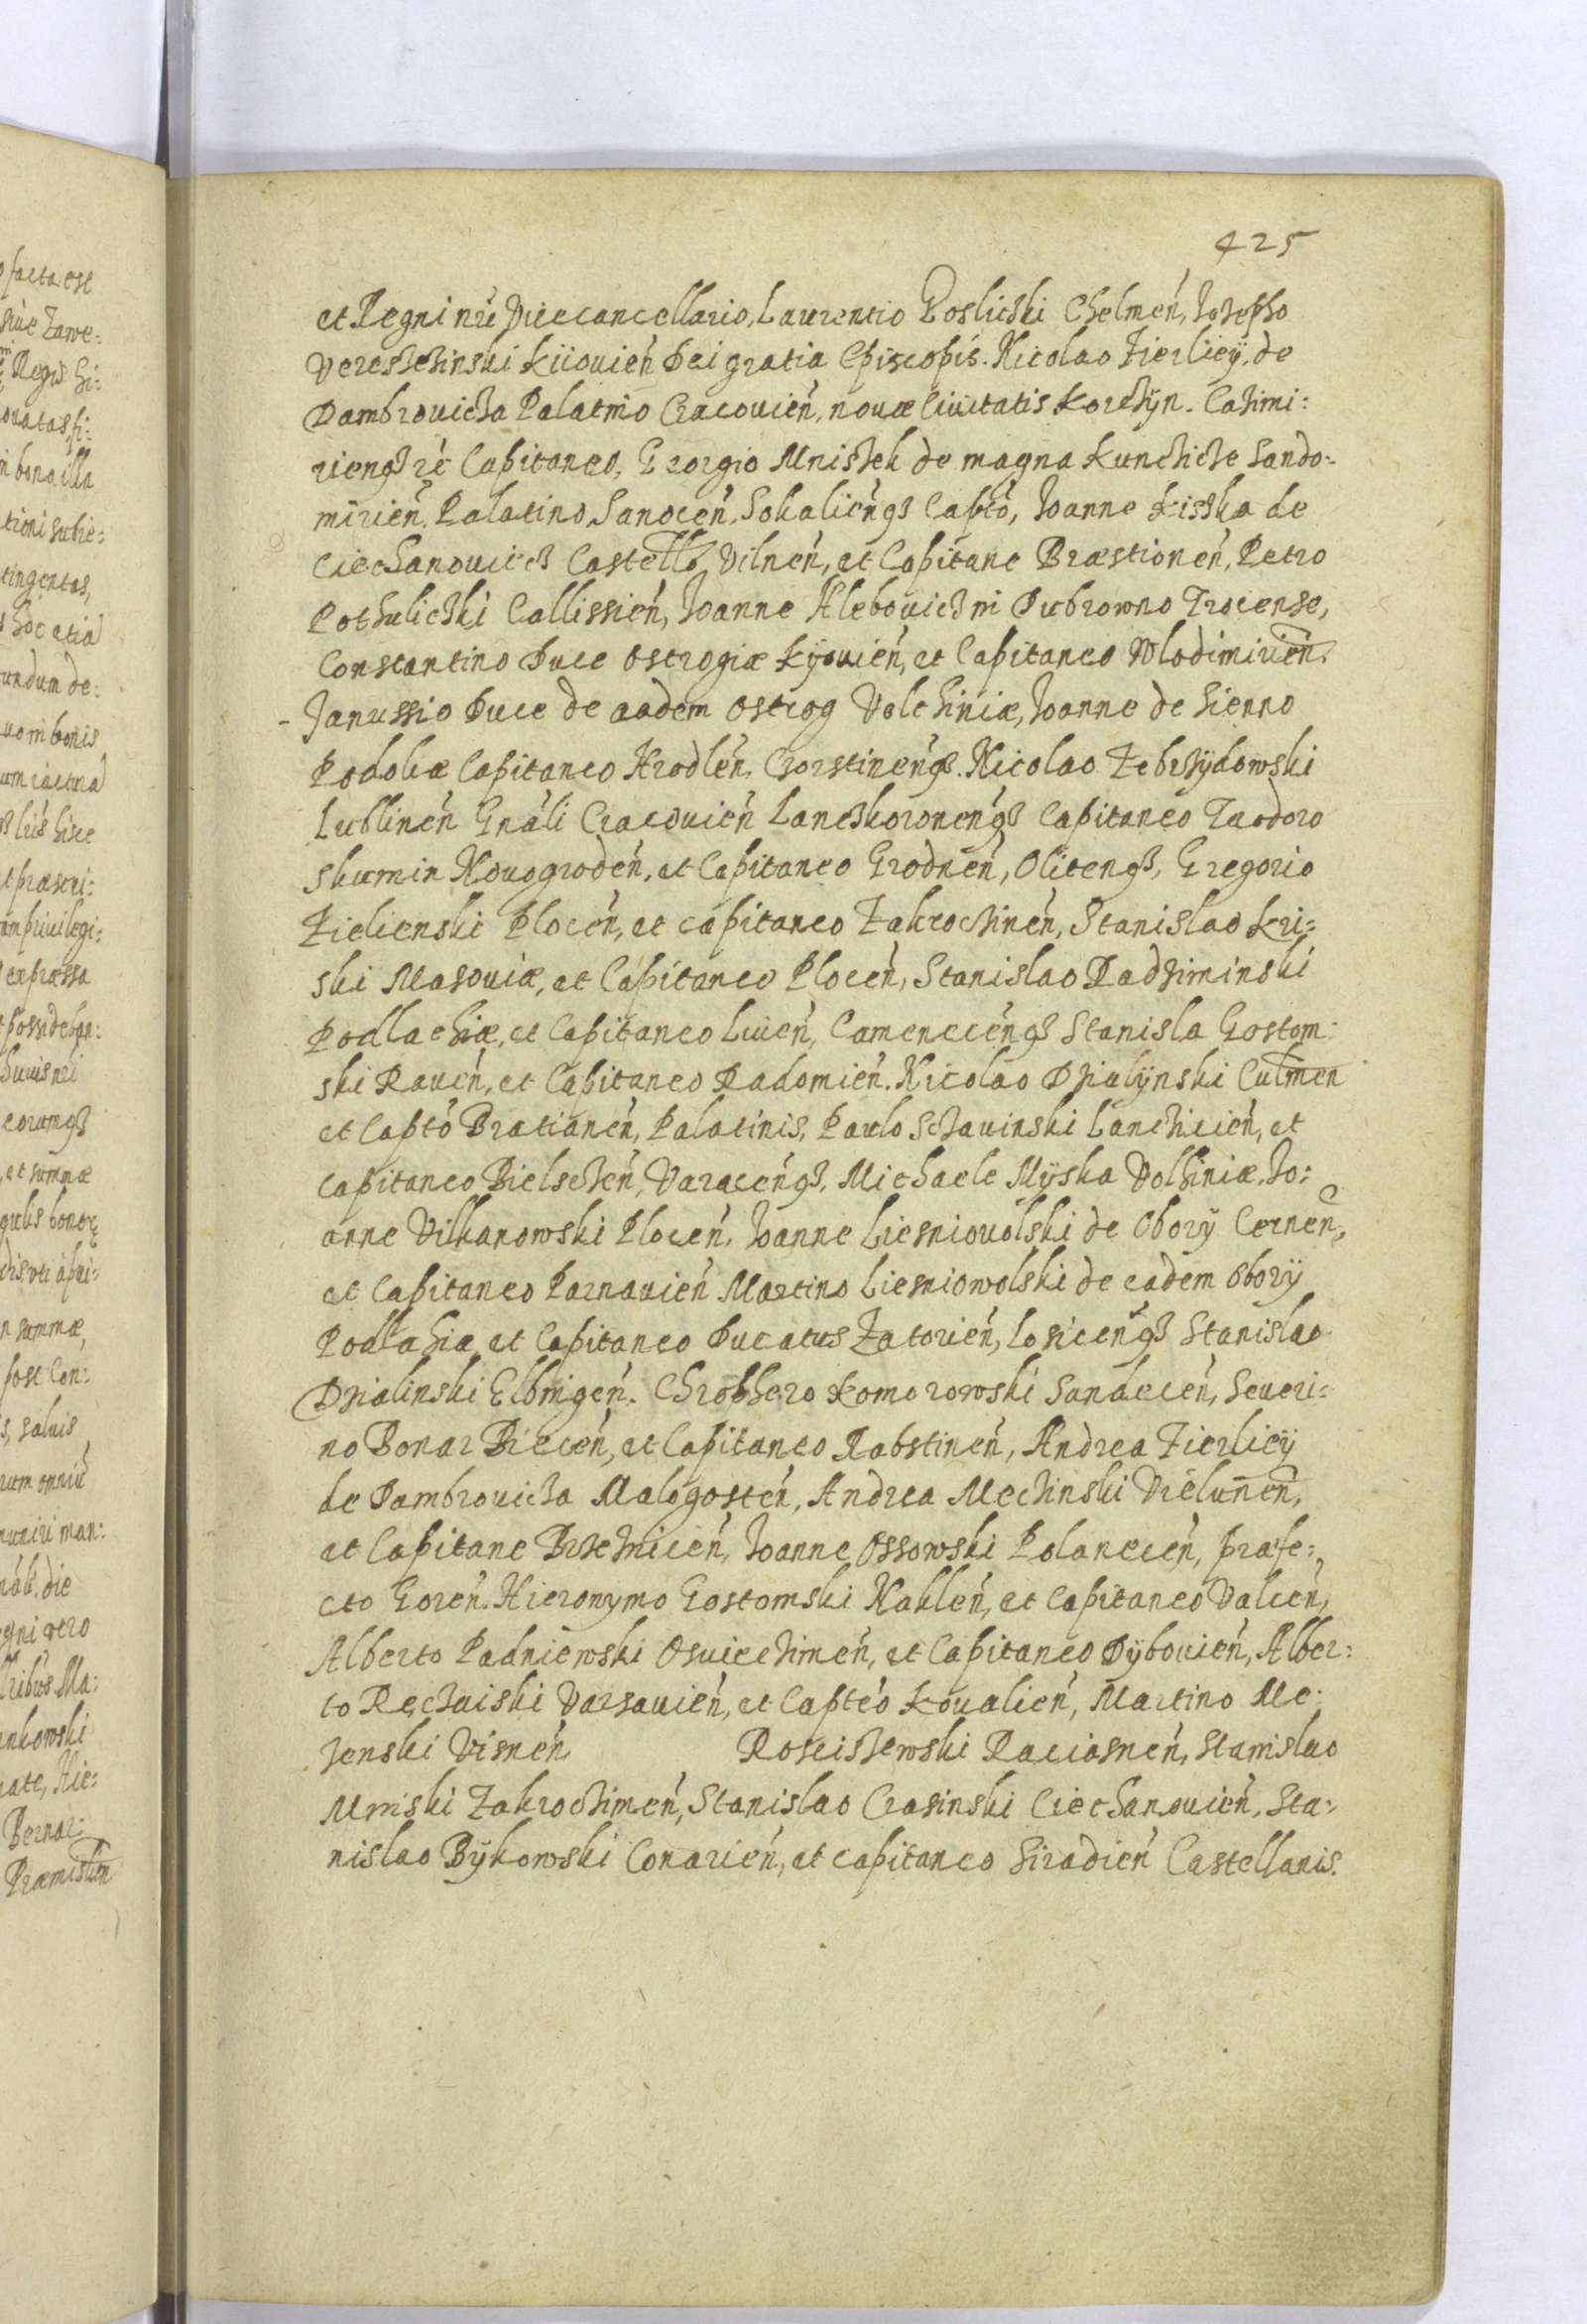 425
et Regni nrĩ Vicecancellario, Laurentio Goslicʒki Chelmeń, Iosepho
Veresscʒinski Kiiouień Dei gratia Episcopis. Nicolao Fierlieÿ, de
Dambrouicʒa Palatino Cracouień, nouæ Ciuitatis Korcʒÿn. Casimi:
riengʒ rè Capitaneo, Georgio Mnisʒek de magna Kunchicʒe Sando:
mirień. Palatino, Sanoceń, Sokalieńqʒ Captō, Ioanne Kisska de
Ciechanouiecʒ Castello Vilneń, et Capitane Bræstioneń, Petro
Pothulicʒki Callissień, Ioanne Hlebouicʒ in Dubrowno Trocense,
Constantino Duce Ostrogiæ Kÿouień, et Capitaneo Wlodimirień.
- Janussio Duce de eadem Ostrog Volchiniæ, Ioanne de Sienno
Podoliæ Capitaneo Hrodleń, Chorstinenqʒ. Nicolao Zebrʒÿdowski
Lublineń Gnãli Cracouień Lancʒkoronenqʒ Capitaneo Taodoro
Skumin Nouogrodeń, et Capitaneo Grodneń, Olitenqʒ, Gregorio
Zielienski Ploceń, et capitaneo Zakrocʒineń, Stanislao Kri:
ski Masouiæ, et Capitaneo Ploceń, Stanislao Radʒiminski
Podlachiæ, et Capitaneo Liuień, Camenecenqʒ Stanisla Gostom:
ski Raueń, et Capitaneo Radomień. Nicolao Dʒialÿnski Culmen
et Captō Bratianeń, Palatinis, Paulo Scʒauinski Lanchicień, et
capitaneo Bielscʒeń, Varacenqʒ, Michaele Mÿska Volhiniæ, Io:
anne Vilkanowski Ploceń, Ioanne Liesniouolski de Oborÿ Cerneń,
et Capitaneo Parnauień Martino Liesniowolski de eadem Oborÿ
Podlahiæ, et Capitaneo Ducatus Zatorień, Losicenqʒ Stanislao
Dʒialinski Elbingeń. Chrobhero Komorowski Sandeceń, Seueri:
no Bonar Bieceń, et Capitaneo Rabstineń, Andrea Fierlieÿ
de Dambrouicʒa Malogosteń, Andrea Mecʒinski Vieluneń,
et Capitane Brʒeʒniceń, Ioanne Ossowski Polaneceń, præfe:
cto Goreń. Hieronymo Gostomski Nakleń, et Capitaneo Valceń,
Alberto Padniewski Osuiecʒimeń, et Capitaneo Dÿbouień, Alber:
to Recʒaiski Varsauień, et Capteō Koualień, Martino Me:
ʒenski Visneń Roscisʒewski Raciasneń, Stanislao
Mniski Zakrocʒimeń, Stanislao Crasinski Ciechanouień, Sta:
nislao Bÿkowski Conarień, et capitaneo Siradień Castellanis.